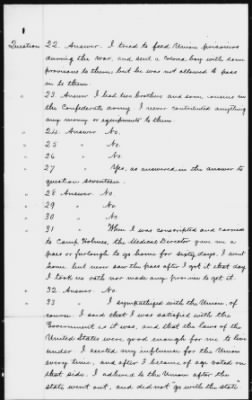 Question 22. Answer. I tried to feed Union prisoners
during the war, and sent a colored boy with some
provisions to them, but he was not allowed to pass
in to them.
" 23. Answer I had two brothers and some cousins in
the Confederate army. I never contributed anything
any money or equipments to them.
" 24. Answer No.
" 25 " No
" 26 " No.
" 27 " Yes, as answered in the answer to
question seventeen.
" 28. Answer. No.
" 29 " No.
" 30 " No
" 31 " When I was conscripted and carried
to Camp Holmes, the Medical Director gave me a
pass or furlough to go home for sixty days. I went
home but never saw the pass after I got it that day
I took no oath nor made any promise to get it.
" 32. Answer No.
" 33 " I sympathized with the Union, of
course. I said that I was satisfied with the
Government as it was, and that the laws of the
United States were good enough for me to live
under. I exerted my influence for the Union
every time, and after I became of age voted on
that side. I adhered to the Union after the
state went out, and did not "go with the state"